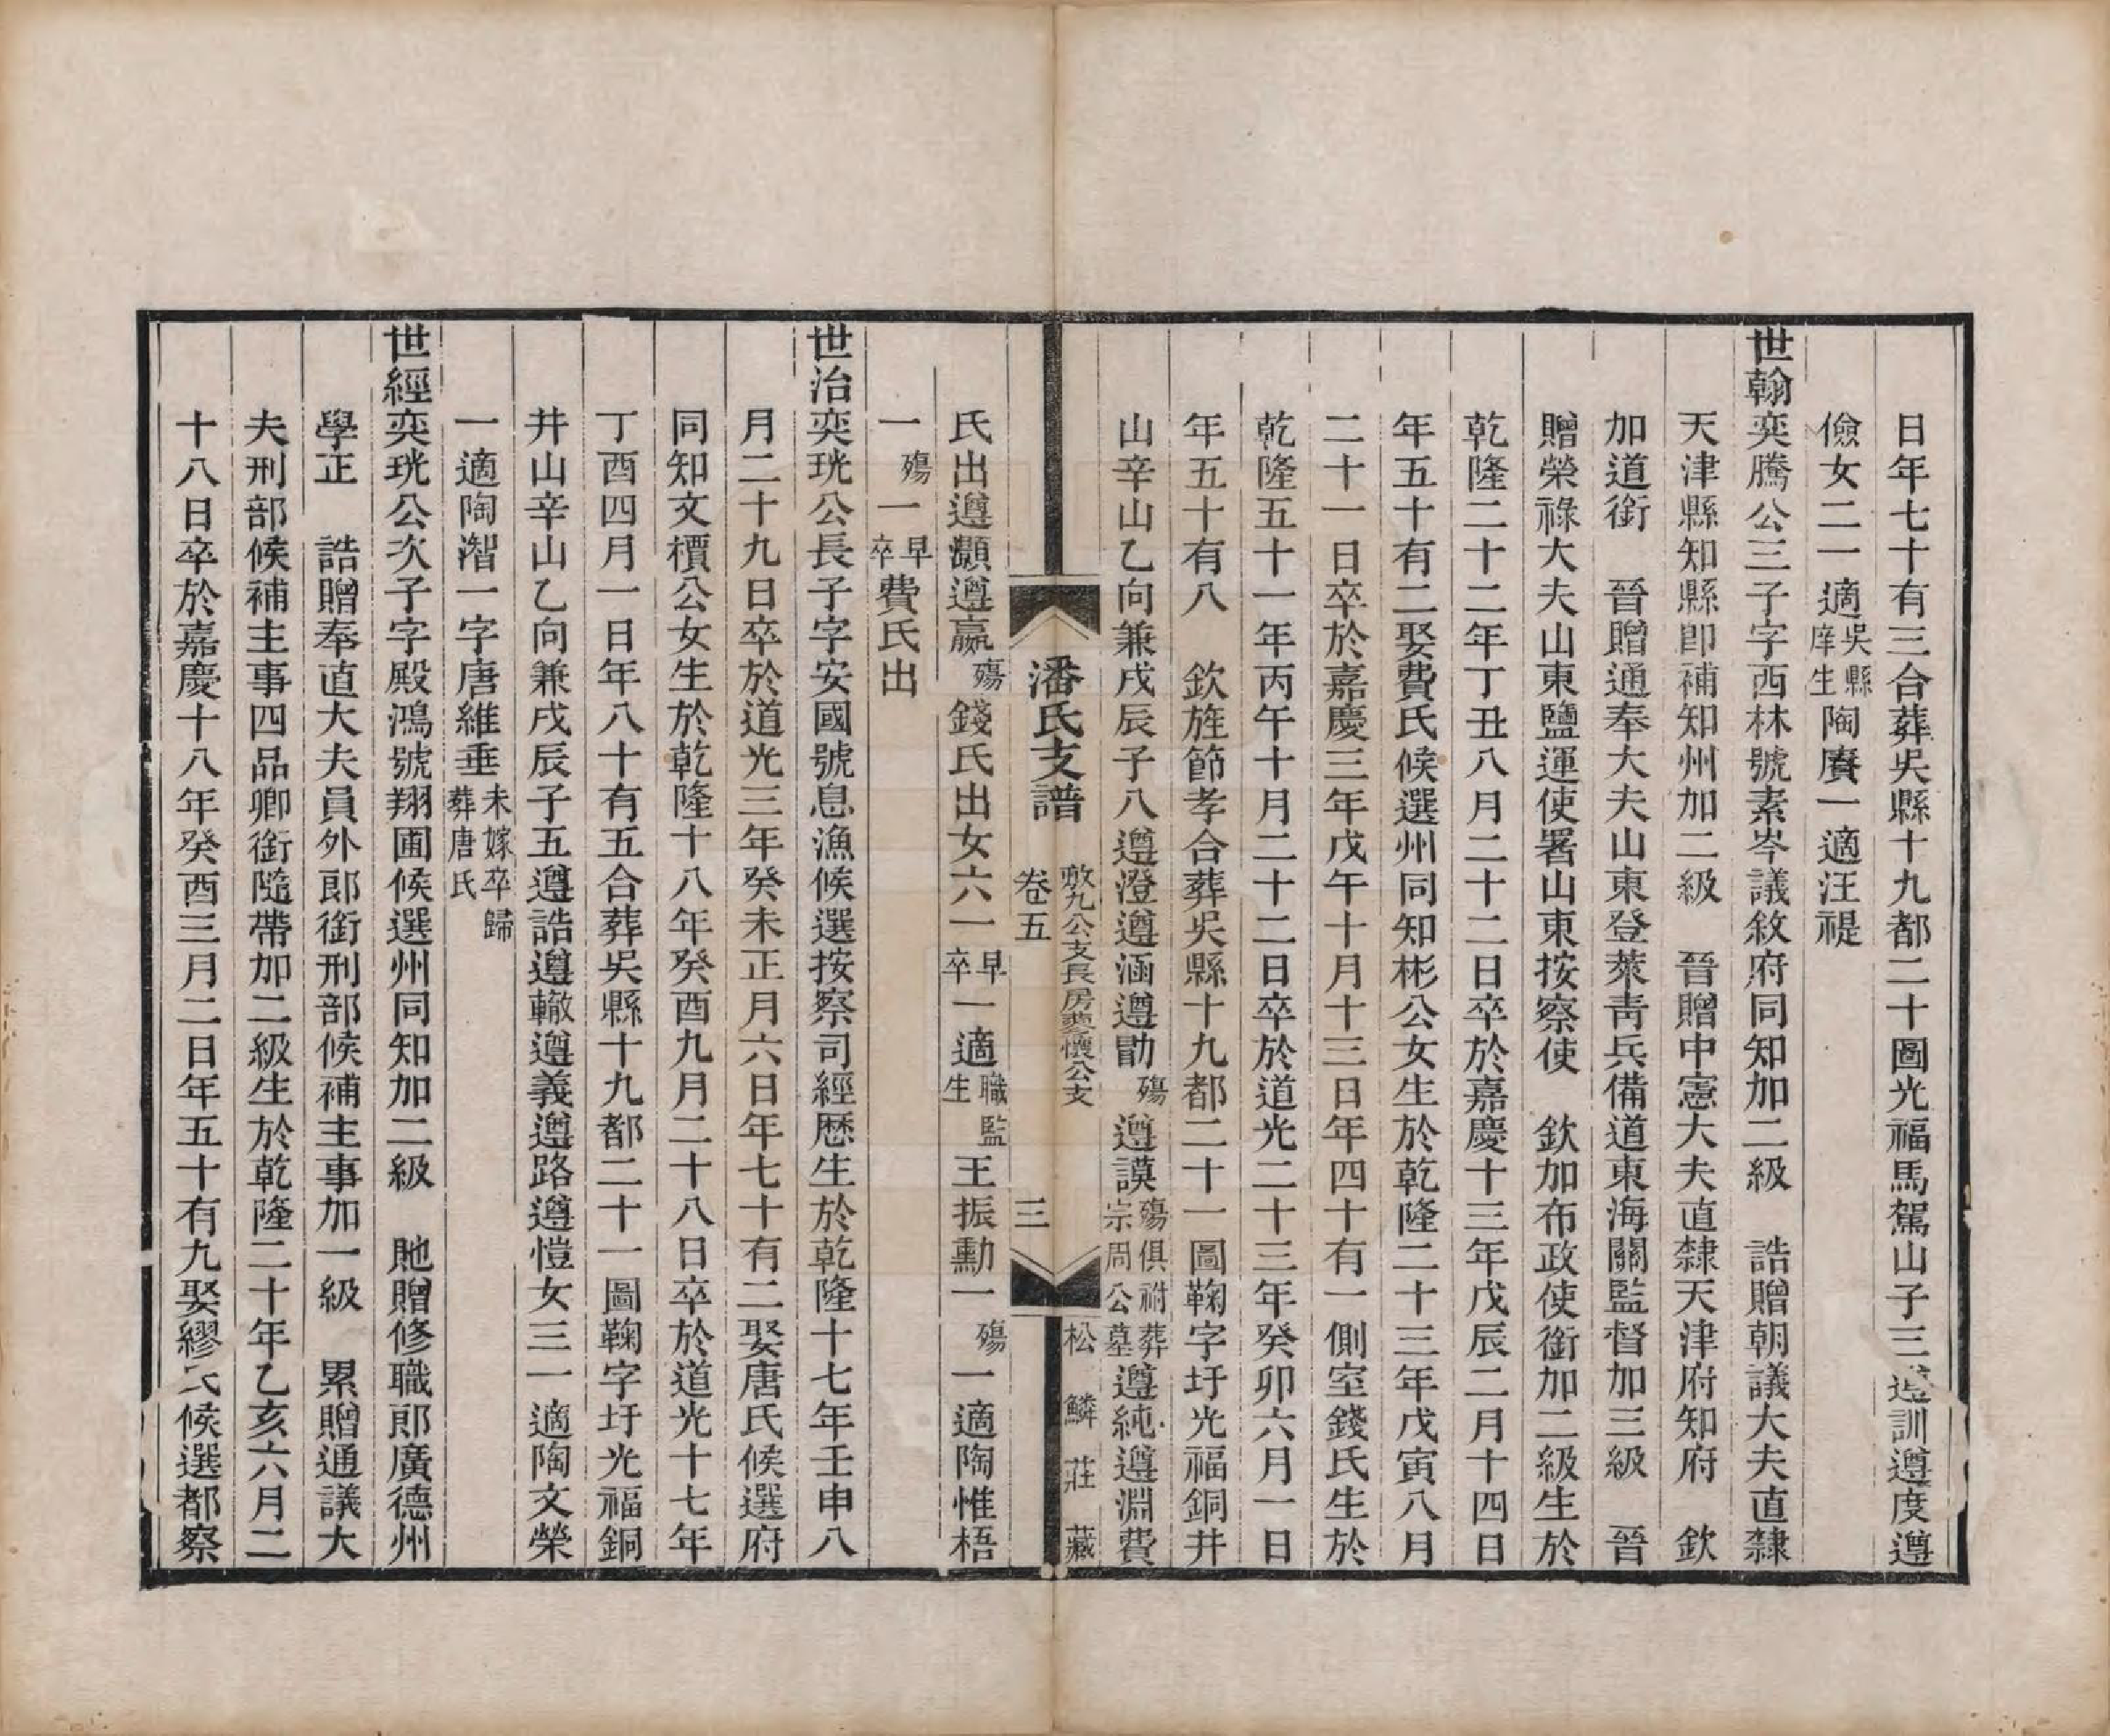 日年七十有三合葬吳縣十九都二十圖光福馬駕山子三遵訓遵度遵
儉女二一適吳縣庠生陶賡一適汪禔
世翰奕騰公三子字西林號素岑議敘府同知加二級　誥贈朝議大夫直隸
天津縣知縣卽補知州加二級　晉贈中憲大夫直隸天津府知府　欽
加道銜　晉贈通奉大夫山東登萊靑兵備道東海關監督加三級　晉
贈榮祿大夫山東鹽運使署山東按察使　欽加布政使銜加二級生於
乾隆二十二年丁丑八月二十二日卒於嘉慶十三年戊辰二月十四日
年五十有二娶費氏候選州同知彬公女生於乾隆二十三年戊寅八月
二十一日卒於嘉慶三年戊午十月十三日年四十有一側室錢氏生於
乾隆五十一年丙午十月二十二日卒於道光二十三年癸卯六月一日
年五十有八　欽旌節孝合葬吳縣十九都二十一圖鞠字圩光福銅井
山辛山乙向兼戌辰子八遵澄遵涵遵勖殤遵謨殤俱祔葬宗周公墓遵純遵淵費
潘氏支譜　卷五　敷九公支長房夔懷公支　三　松鱗莊藏
氏出遵灝遵嬴殤錢氏出女六一早卒一適職監生王振勳一殤一適陶惟梧
一殤一早卒費氏出
世治奕珖公長子字安國號息漁候選按察司經歷生於乾隆十七年壬申八
月二十九日卒於道光三年癸未正月六日年七十有二娶唐氏候選府
同知文檟公女生於乾隆十八年癸酉九月二十八日卒於道光十七年
丁酉四月一日年八十有五合葬吳縣十九都二十一圖鞠字圩光福銅
井山辛山乙向兼戌辰子五遵誥遵轍遵義遵路遵愷女三一適陶文榮
一適陶潪一字唐維垂未嫁卒歸葬唐氏
世經奕珖公次子字殿鴻號翔圃候選州同知加二級　貤贈修職郎廣德州
學正　誥贈奉直大夫員外郎銜刑部候補主事加一級　累贈通議大
夫刑部候補主事四品卿銜隨帶加二級生於乾隆二十年乙亥六月二
十八日卒於嘉慶十八年癸酉三月二日年五十有九娶繆氏候選都察